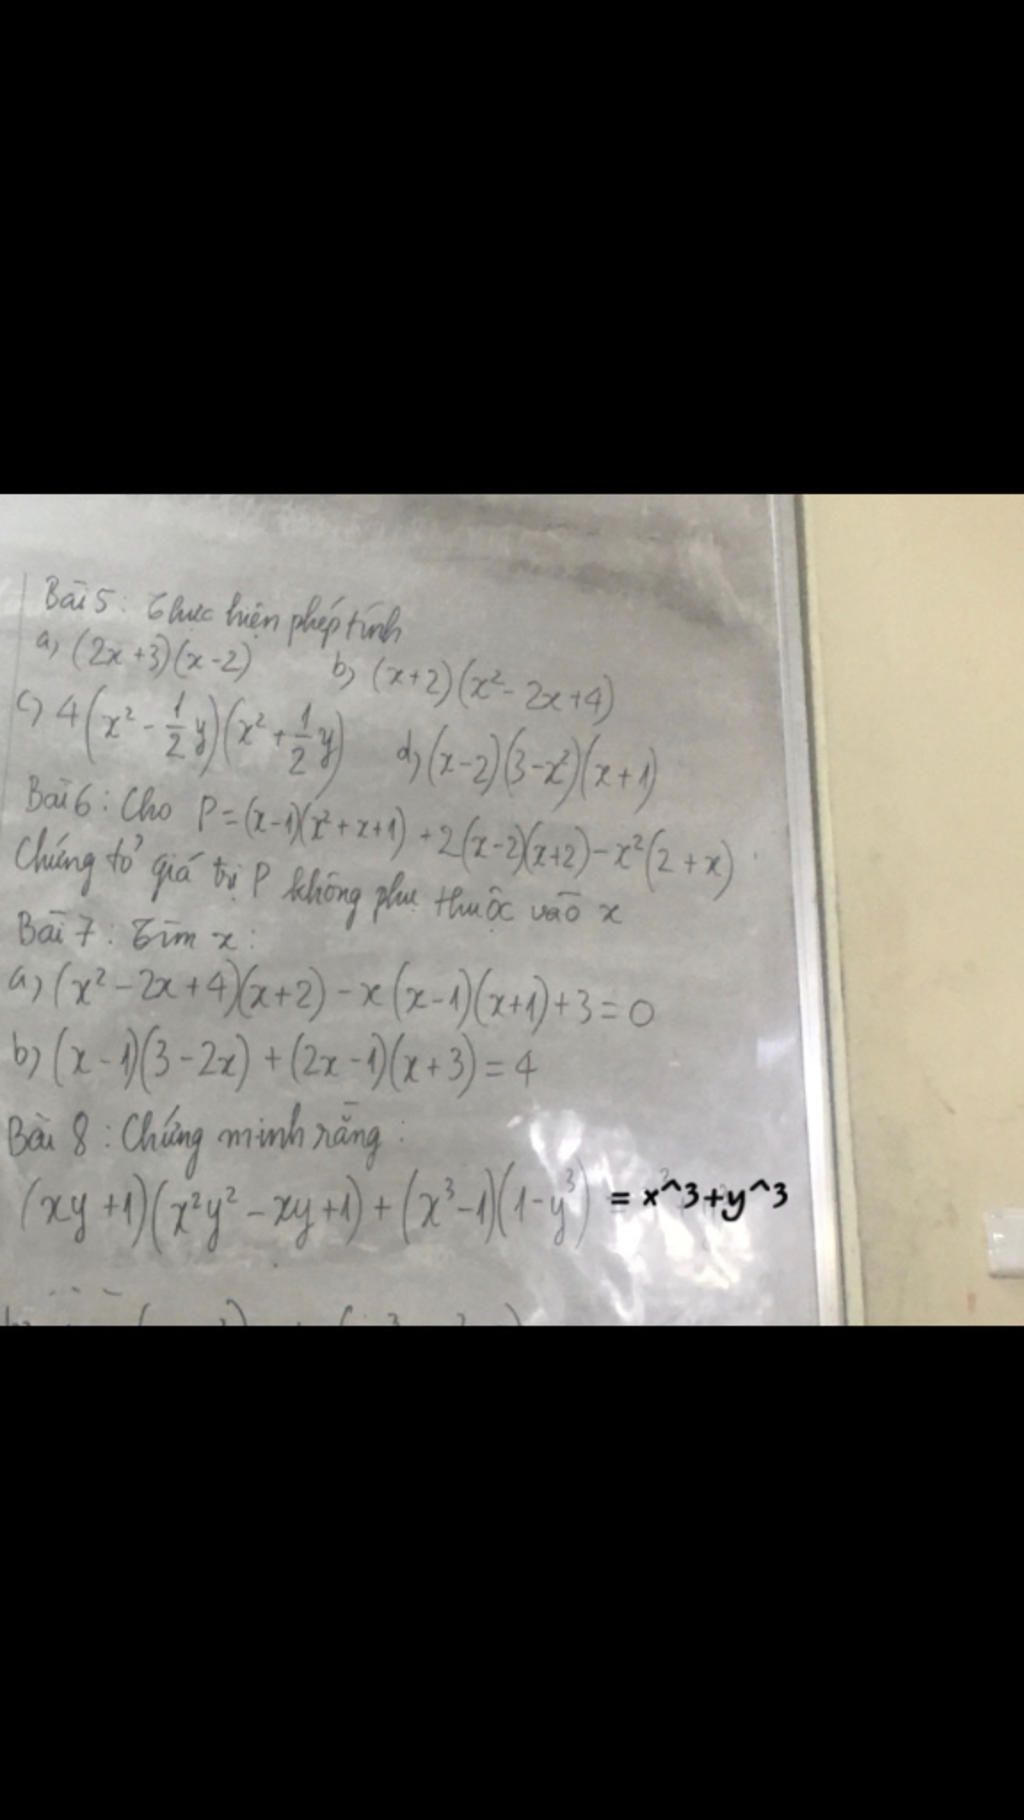 Bài 5: Thực hiện phép tính
a) (2x+3)(x-2) b) (x+2)(x²-2x+4)
c) 4(x²-1/2y)(x²+1/2y) d) (x-2)(3-x²)(x+1)
Bài 6: Cho P=(x-1)(x²+x+1)+2(x-2)(x+2)-x²(2+x)
Chứng tỏ giá trị P không phụ thuộc vào x
Bài 7: Tìm x:
a) (x²-2x+4)(x+2)-x(x-1)(x+1)+3=0
b) (x-1)(3-2x)+(2x-1)(x+3)=4
Bài 8: Chứng minh rằng:
(xy+1)(x²y²-xy+1)+(x³-1)(1-y³) = x^3+y^3